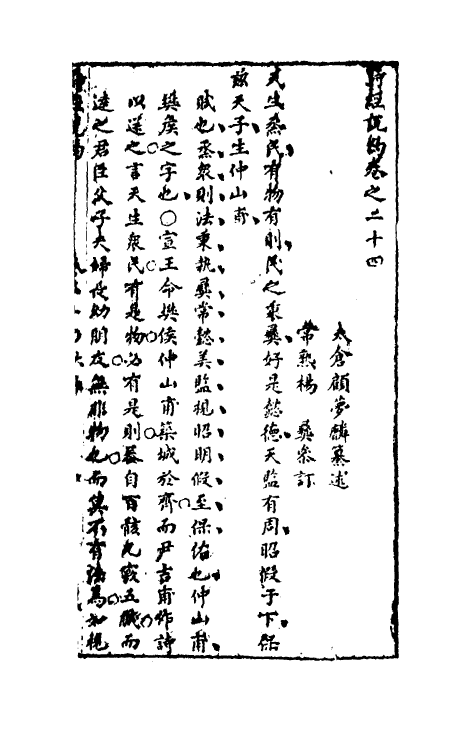 詩經說約卷之二十四
太倉顧夢麟纂述
常熟楊　彝參訂
天生烝民有物有則民之秉彝好是懿德天監有周昭假于下保
茲天子生仲山甫
賦也烝衆則法秉執彝常懿美監視昭明假至保佑也仲山甫
樊侯之字也○宣王命樊侯仲山甫築城於齊而尹吉甫作詩
以送之言天生衆民有是物必有是則蓋自百骸九竅五臟而
達之君臣父子夫婦長幼朋友無非物也而莫不有法焉如視